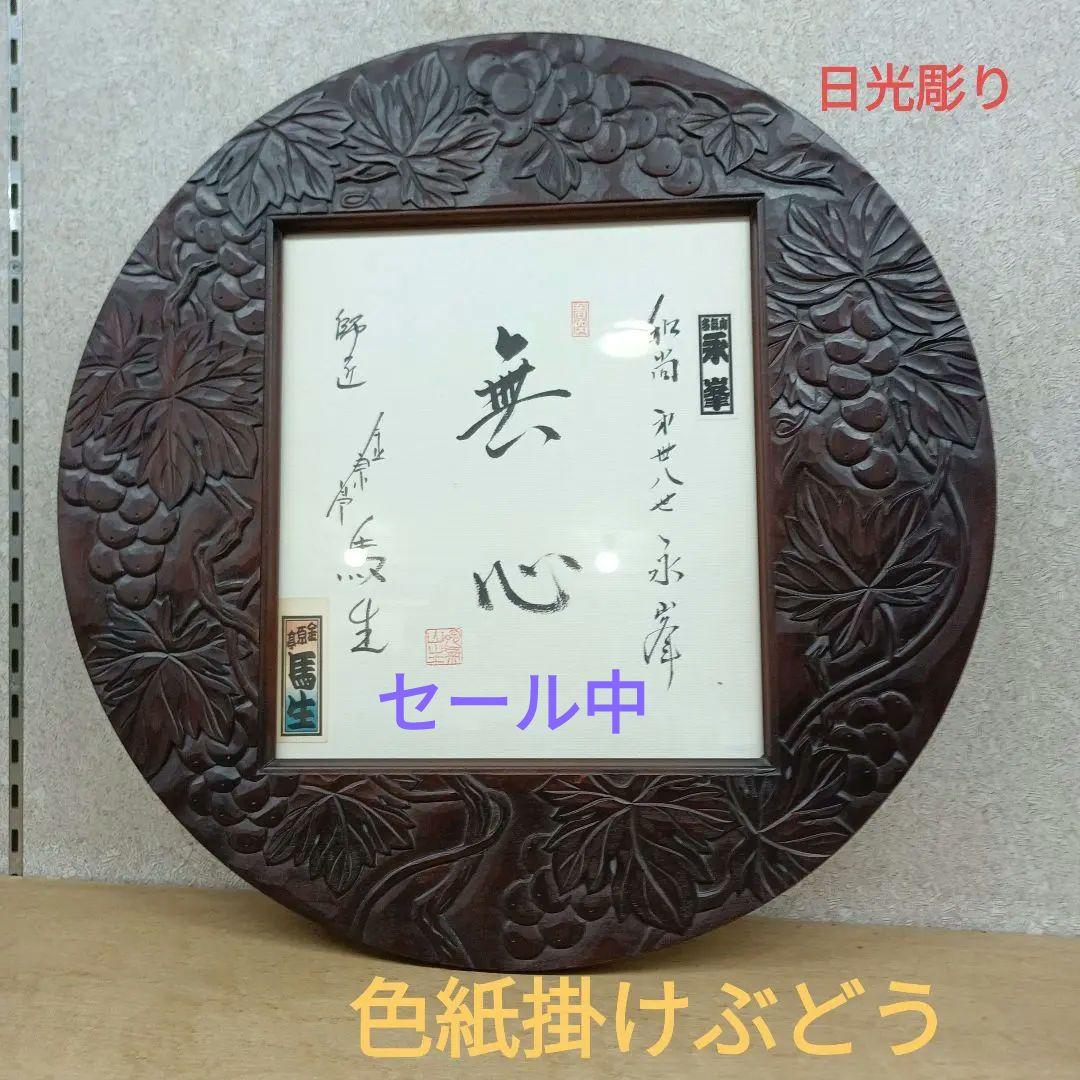 日光彫り
永峯
和尚 第卅八世 永峯
無心
師匠 金原亭馬生
金原亭
馬生
セール中
色紙掛けぶどう